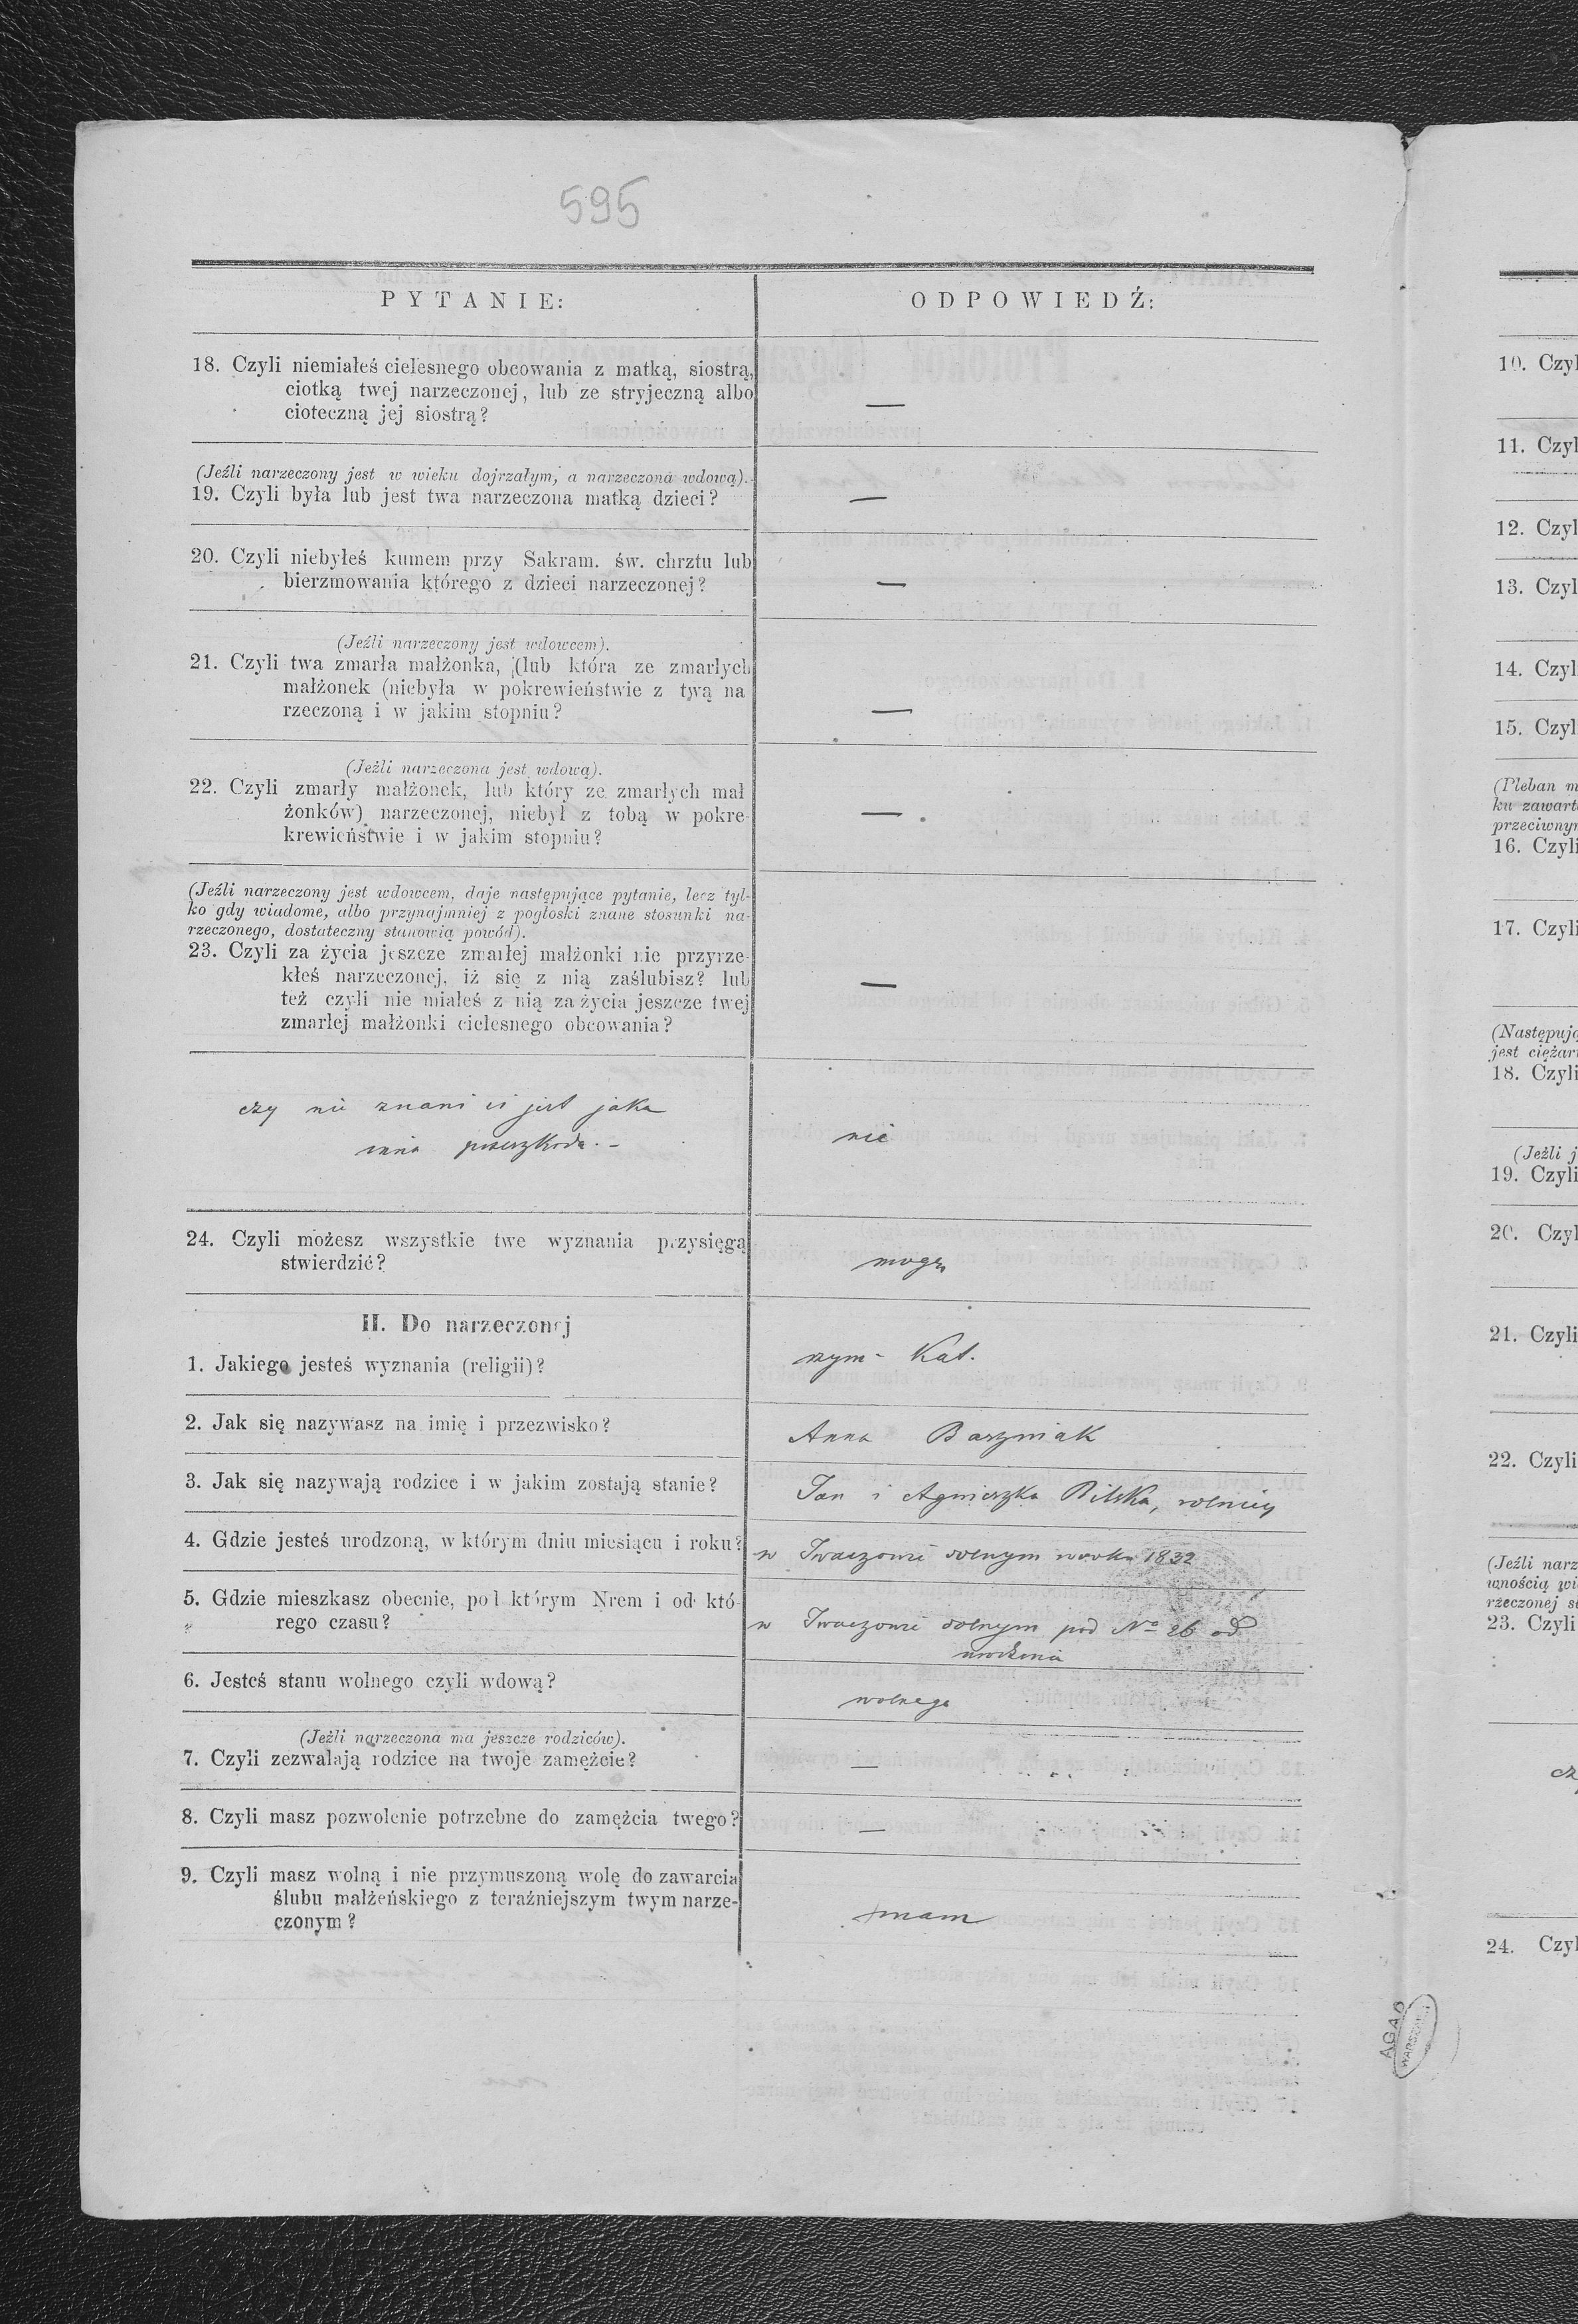 595
PYTANIE:
ODPOWIEDŹ:
18. Czyli niemiałeś cielesnego obcowania z matką, siostrą,
ciotką twej narzeczonej, lub ze stryjeczną albo
cioteczną jej siostrą?
—
(Jeźli narzeczony jest w wieku dojrzałym, a narzeczona wdową).
19. Czyli była lub jest twa narzeczona matką dzieci?
—
20. Czyli niebyłeś kumem przy Sakram. św. chrztu lub
bierzmowania którego z dzieci narzeczonej?
—
(Jeźli narzeczony jest wdowcem).
21. Czyli twa zmarła małżonka, (lub która ze zmarłych
małżonek (niebyła w pokrewieństwie z twą na
rzeczoną i w jakim stopniu?
—
(Jeźli narzeczona jest wdową).
22. Czyli zmarły małżonek, lub który ze zmarłych mał
żonków) narzeczonej, niebył z tobą w pokre-
krewieństwie i w jakim stopniu?
—
(Jeźli narzeczony jest wdowcem, daje następujące pytanie, lecz tyl-
ko gdy wiadome, albo przynajmniej z pogłoski znane stosunki na-
rzeczonego, dostateczny stanowią powód).
23. Czyli za życia jeszcze zmarłej małżonki nie przyrze-
kłeś narzeczonej, iż się z nią zaślubisz? lub
też czyli nie miałeś z nią za życia jeszcze twej
zmarłej małżonki cielesnego obcowania?
—
czy nie znani ci jest jaka
inna przeszkoda. –
nie
24. Czyli możesz wszystkie twe wyznania przysięgą
stwierdzić?
mogę
II. Do narzeczonej
1. Jakiego jesteś wyznania (religii)?
rzym- Kat.
2. Jak się nazywasz na imię i przezwisko?
Anna Barzniak
3. Jak się nazywają rodzice i w jakim zostają stanie?
Jan i Agnieszka Bilska, rolnicy
4. Gdzie jesteś urodzoną, w którym dniu miesiącu i roku?
w dolnym w roku 1832
5. Gdzie mieszkasz obecnie, pod którym Nrem i od któ-
rego czasu?
w dolnym pod No 26 od
urodzenia
6. Jesteś stanu wolnego czyli wdową?
wolnego
(Jeźli narzeczona ma jeszcze rodziców).
7. Czyli zezwalają rodzice na twoje zamężcie?
—
8. Czyli masz pozwolenie potrzebne do zamężcia twego?
—
9. Czyli masz wolną i nie przymuszoną wolę do zawarcia
ślubu małżeńskiego z teraźniejszym twym narze-
czonym?
mam
10. Czyl
11. Czyl
12. Czyl
13. Czyl
14. Czyl
15. Czyl
(Pleban m
ku zawart
przeciwnym
16. Czyli
17. Czyli
(Następują
jest ciężar
18. Czyli
(Jeźli j
19. Czyli
20. Czyl
21. Czyli
22. Czyli
(Jeźli narz
wnością wi
rzeczonej s
23. Czyli
cz
24. Czyl
AGAD
WARSZAWA